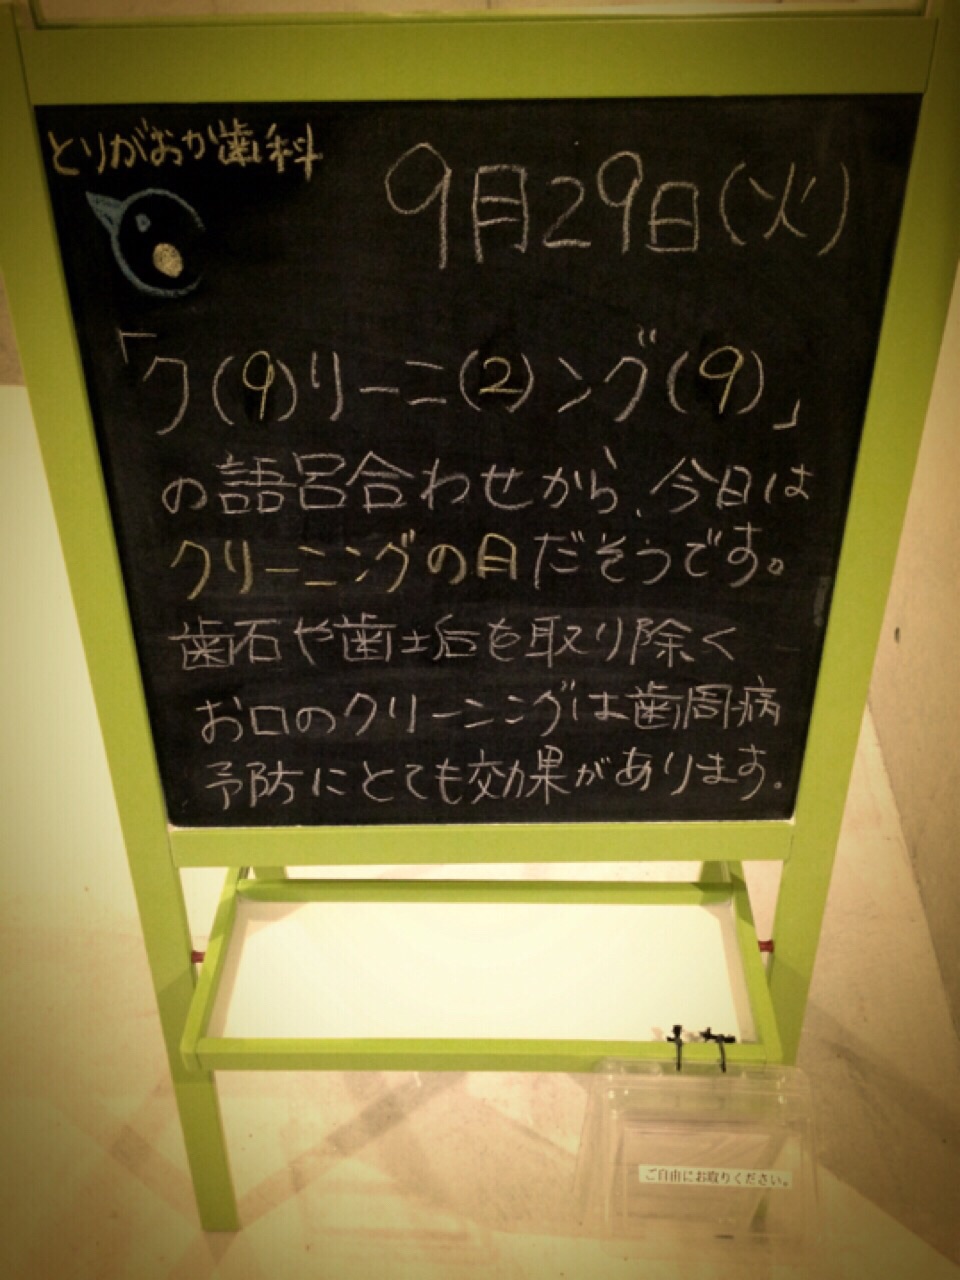 とりがおか歯科
9月29日(火)
「ク(9)リーニ(2)ング(9)」
の語呂合わせから、今日は
クリーニングの日だそうです。
歯石や歯垢を取り除く
お口のクリーニングは歯周病
予防にとても効果があります。
ご自由にお取りください。